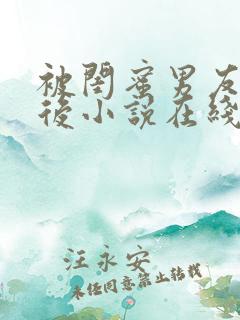 被閨蜜男友
後小說在綫
汪永安
未经同意禁止转载